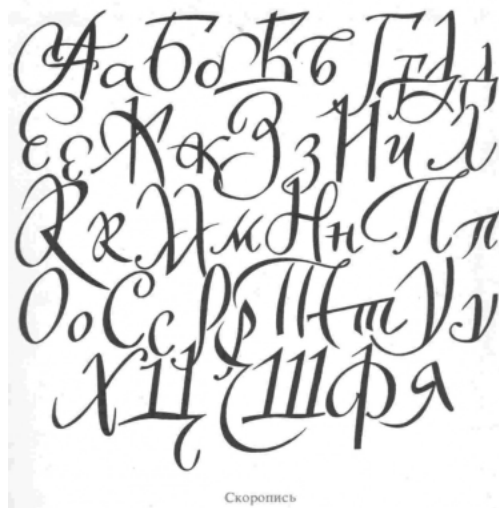 АаБбВвГгДд
ЕеЖжЗзИиЛ
КкМмНнПп
ООоСсРрТтУу
ХЦШФЯ
Скоропись